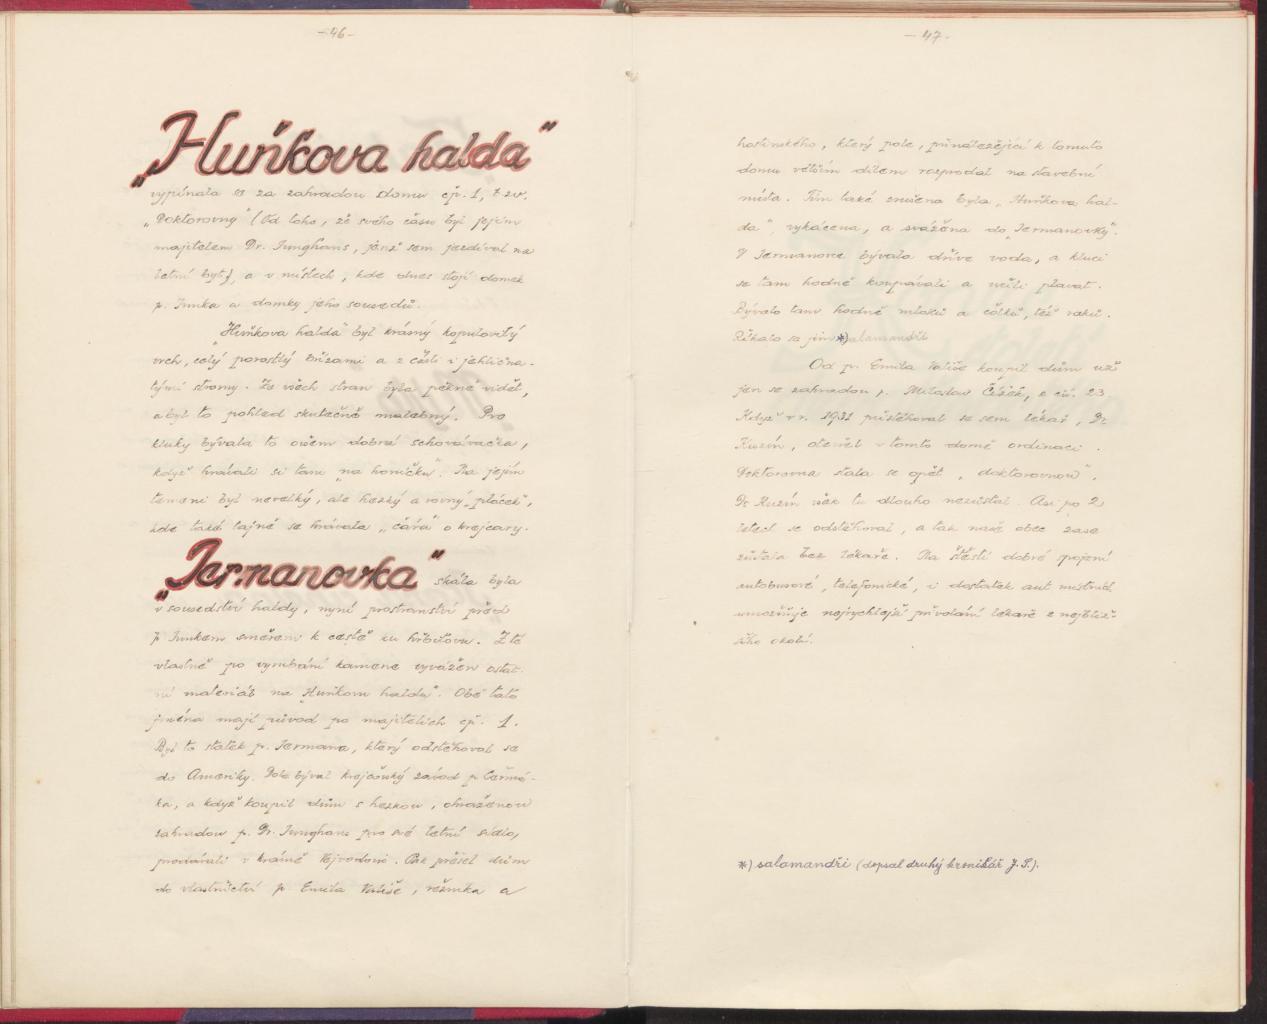 -46-
„Huňkova halda"
vypínala se za zahradou domu čp. 1, t. zv.
„Doktorovny" (Od toho, že svého času byl jejím
majitelem Dr. Junghans, jenž sem jezdíval na
letní byt), a v místech, kde dnes stojí domek
p. Junka a domky jeho sousedů.
„Huňkova halda" byl krásný kopulovitý
vrch, celý porostlý břízami a z části i jehlična-
tými stromy. Ze všech stran byla pěkně vidět,
a byl to pohled skutečně malebný. Pro
kluky bývala to ovšem dobrá schovávačka,
když hrávali si tam „na honičku". Na jejím
temeni byl nevelký, ale hezký a rovný „pláček",
kde také tajně se hrávala „čára" o krejcary.
„Jermanovka" skála byla
v sousedství haldy, nyní prostranství před
p. Junkem směrem k cestě ku hřbitovu. Z té
vlastně po vyrubání kamene vyvážen ostat-
ní materiál na „Huňkovu haldu". Obě tato
jména mají původ po majitelích čp. 1.
Byl to statek p. Jermana, který odstěhoval se
do Ameriky. Pak býval krejčovský závod p. Čermá-
ka, a když koupil dům s hezkou, ohraženou
zahradou p. Dr. Junghans pro své letní sídlo,
prodávali v krámě Vejvodovi. Pak přešel dům
do vlastnictví p. Emila Vališe, řezníka a
-47-
hostinského, který pole, přináležející k tomuto
domu větším dílem rozprodal na stavební
místa. Tím také zničena byla „Huňkova hal-
da", vykácena, a svážena do „Jermanovky".
V Jermanovce bývala dříve voda, a kluci
se tam hodně koupávali a učili plavat.
Bývalo tam hodně mloků a čolků, též raků.
Říkalo se jim *) salamandři.
Od p. Emila Vališe koupil dům už
jen se zahradou p. Miloslav Čížek, z čís. 23
Když v r. 1931 přistěhoval se sem lékař, Dr.
Kuzín, otevřel v tomto domě ordinaci.
Doktorovna stala se opět „doktorovnou".
Dr Kuzín však tu dlouho nezůstal. Asi po 2
letech se odstěhoval, a tak naše obec zase
zůstala bez lékaře. Na štěstí dobré spojení
autobusové, telefonické, i dostatek aut místních
umožňuje nejrychlejší přivolání lékaře z nejbliž-
šího okolí.
*) salamandři (dopsal druhý kronikář J. S.).